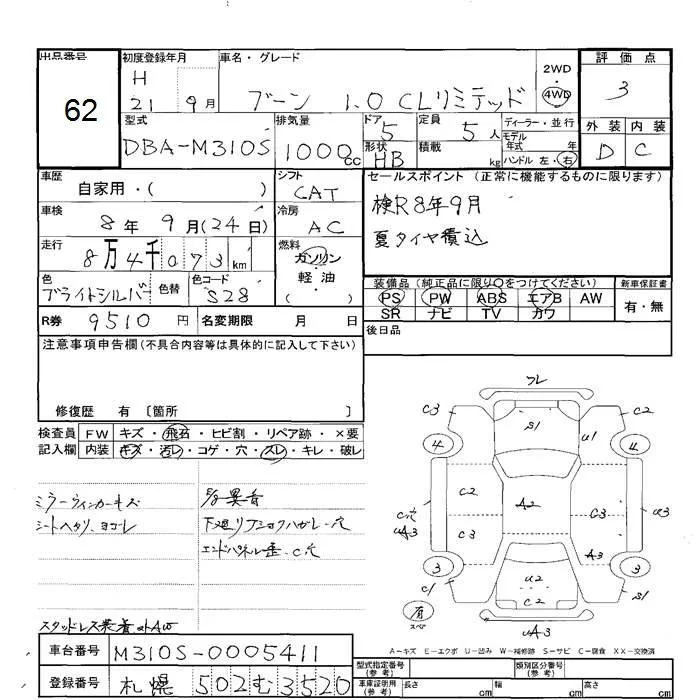 出品番号
62
初度登録年月
H
21 9月
車名・グレード
ブーン 1.0 CLリミテッド
2WD
4WD
評価点
3
型式
DBA-M310S
排気量
1000cc
ドア
5
形状
HB
定員
5人
積載
kg
ディーラー・並行
モデル
年式 年
ハンドル 左・右
外装 内装
D C
車歴
自家用・( )
シフト
CAT
セールスポイント (正常に機能するものに限ります)
検R8年9月
夏タイヤ積込
車検
8年 9月(24日)
冷房
AC
走行
8万4千073km
燃料
ガソリン
軽油
( )
色
ブライトシルバー
色替
色コード
S28
装備品(純正品に限り○をつけてください)
新車保証書
PS PW ABS エアB AW
SR ナビ TV カワ
有・無
R券 9510円
名変期限 月 日
後日品
注意事項申告欄(不具合内容等は具体的に記入して下さい)
修復歴 有 〔箇所 〕
検査員
記入欄
FW キズ・飛石・ヒビ割・リペア跡・×要
内装 キズ・汚レ・コゲ・穴・スレ・キレ・破レ
ミラーウィンカーキズ
シートヘタリ、ヨゴレ
異音
下廻リフショクハガレ・穴
エンドパネル歪・C穴
スタッドレス装着
フレ
C3 S1 C2
4 U1 4
C2 A2
C穴 C3
C3
A3
3 U2 3
C1 C2 S1
有
スペア
A-キズ E-エクボ U-凹み W-補修跡 S-サビ C-腐食 XX-交換済
車台番号 M310S-0005411
登録番号 札幌 502む3520
型式指定番号
(参考)
類別区分番号
(参考)
車庫証明用
(参考)
長さ cm 幅 cm 高さ cm